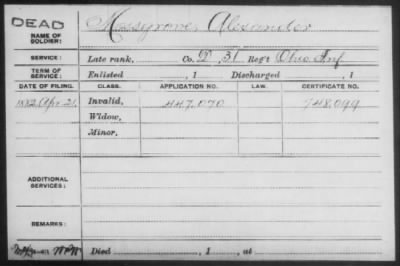 DEAD
NAME OF SOLDIER: Mossgrove Alexander
SERVICE: Late rank, Co. D 31 Reg't Ohio Inf
TERM OF SERVICE: Enlisted , 1 Discharged , 1
DATE OF FILING. CLASS. APPLICATION NO. LAW. CERTIFICATE NO.
1882 Apr. 21. Invalid, 447,070 748,099
Widow,
Minor.
ADDITIONAL SERVICES:
REMARKS:
Died , 1 , at